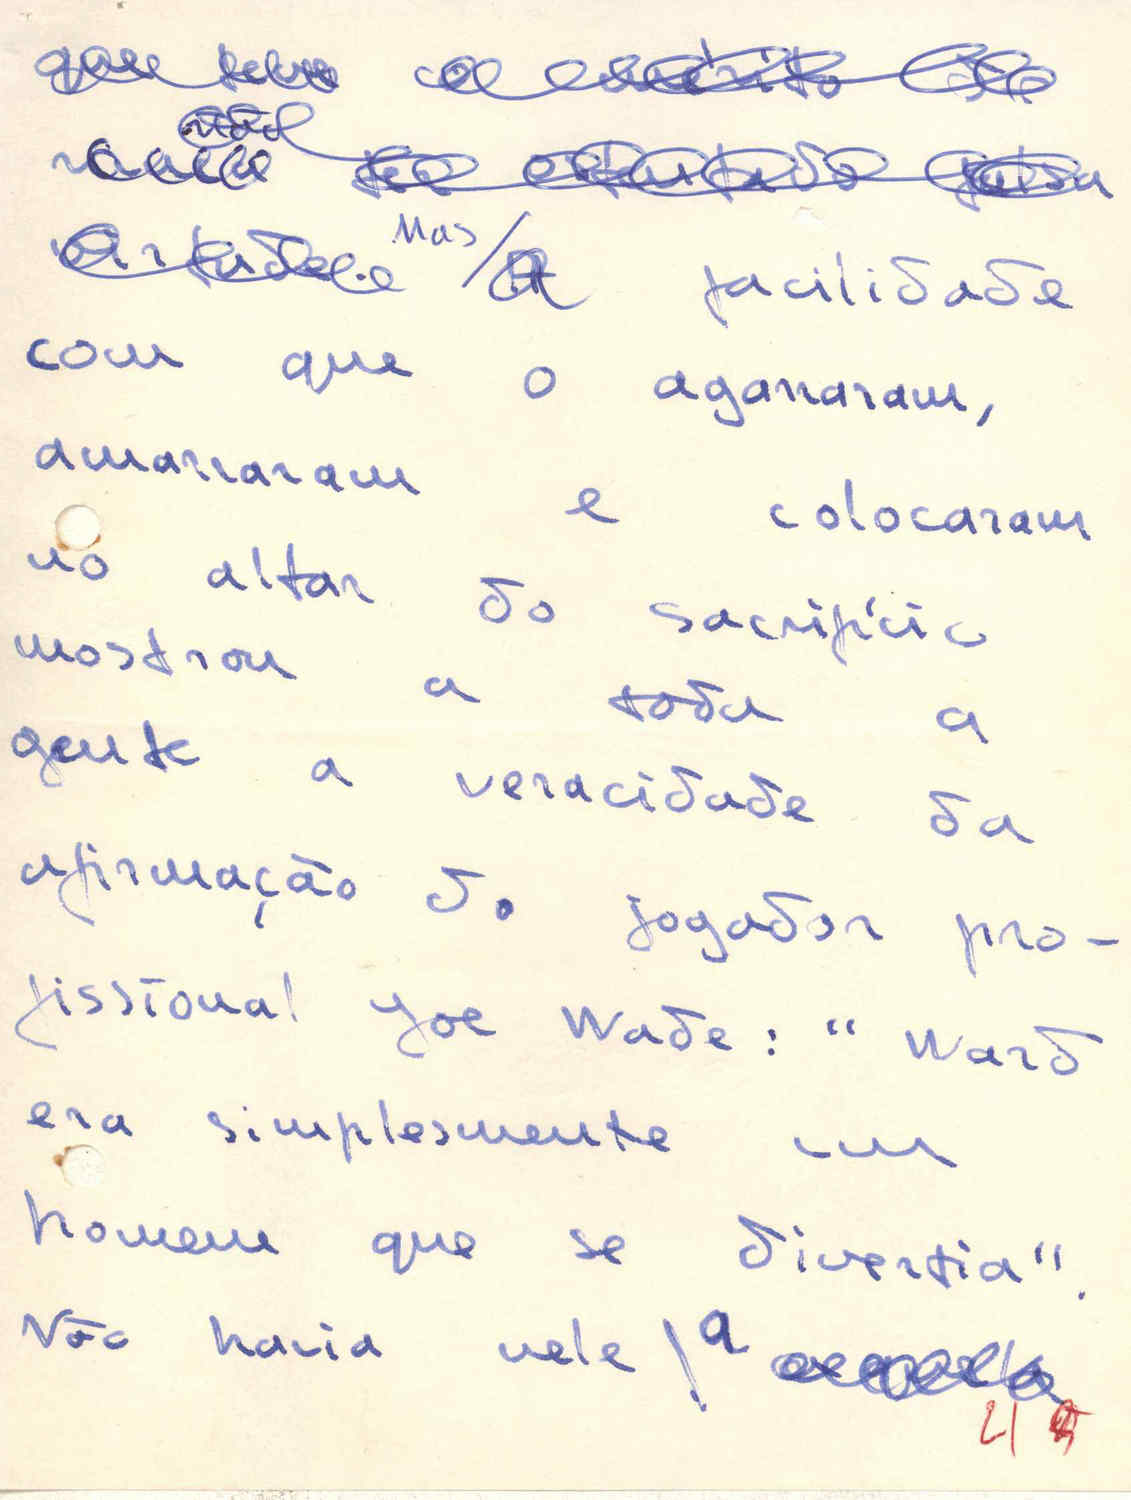 Mas A facilidade
com que o agarraram,
amarraram e colocaram
no altar do sacrifício
mostrou a toda a
gente a veracidade da
afirmação do jogador pro-
fissional Joe Wade: "Ward
era simplesmente um
homem que se divertia".
Não havia nele a